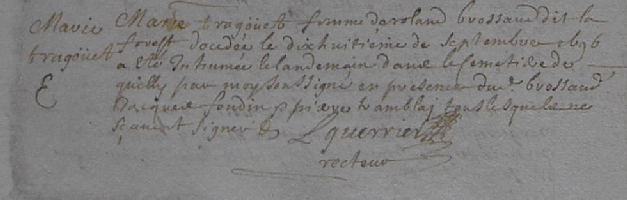 Marie
tragoüet
Marie tragoüet femme de roland brossaud dit la
forest decedée le dixhuitiéme de septembre 1696
a esté Inhumée le landemain dans le cemetiere de
quilly par moy soussigné en presence dud. brossaud
Jacques fondin pierre tramblaj tous lesquels ne
sçavent signer
L guerrier
recteur